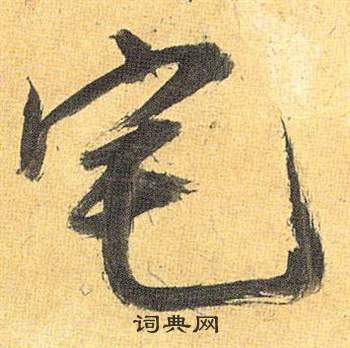 宅
词典网